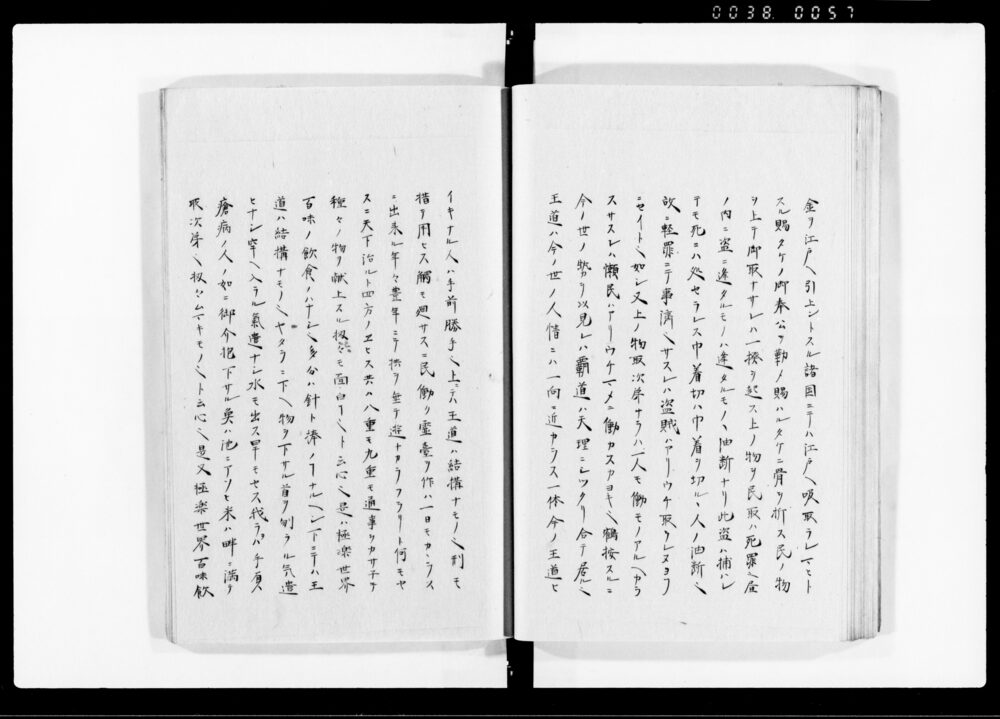 0038 0057
金ヲ江戸ヘ引上ントスル諸国ニテハ江戸ヘ吸取ラレマヒト
スル賜タケノ御奉公ヲ勤メ賜ハルタケニ骨ヲ折ス民ノ物
ヲ上テ御取ナサレハ一揆ヲ起ス上ノ物ヲ民取ハ死罪也屋
ノ内ニ盗ニ逢タルモノハ逢タルモノヽ油断ナリ此盗ハ捕ハレ
テモ死ニハ処セラレス巾着切ハ巾着ヲ切ルヽ人ノ油断也
故ニ軽罪ニテ事済也サスレハ盗賊ハアリウチ取ラレヌヨフ
ニセイト云如シ又上ノ物取次第ナラハ一人モ働モノアルヘカラ
スサスレハ懶民ハアリウチマメニ働カスカヨキ也鶴按スルニ
今ノ世ノ勢ヲ以見レハ覇道ハ天理ニシツクリ合テ居ル也
王道ハ今ノ世ノ人情ニハ一向ニ近カラス一体今ノ王道ヒ
イキナル人ハ手前勝手也上ニテハ王道ハ結構ナモノ也刑モ
措テ用ヒス觸モ廻サスニ民働ク霊臺ヲ作ハ一日モカヽラス
ニ出来ル年々豊年ニテ拱ヲ垂テ遊ナカラフラリト何モヤ
スニ天下治ル四方ノヱヒス共ハ八重モ九重モ通事ヲカサ子テ
種々ノ物ヲ献上スル扨々モ面白イコト云心也是ハ極楽世界
百味ノ飲食ノハナシ也多分ハ針ト棒ノコトナルヘシ下ニテハ王
道ハ結構ナモノ也ヤタラニ下ヘ物ヲ下サル首ヲ刎ラル気遣
ヒナシ牢ヘ入ラル氣遣ナシ水モ出ス旱モセス我ラハ手負
瘡病ノ人ノ如ニ御介抱下サル魚ハ池ニアソヒ米ハ畔ニ満テ
取次第也扨々ムマキモノ也ト云心也是又極楽世界百味飲